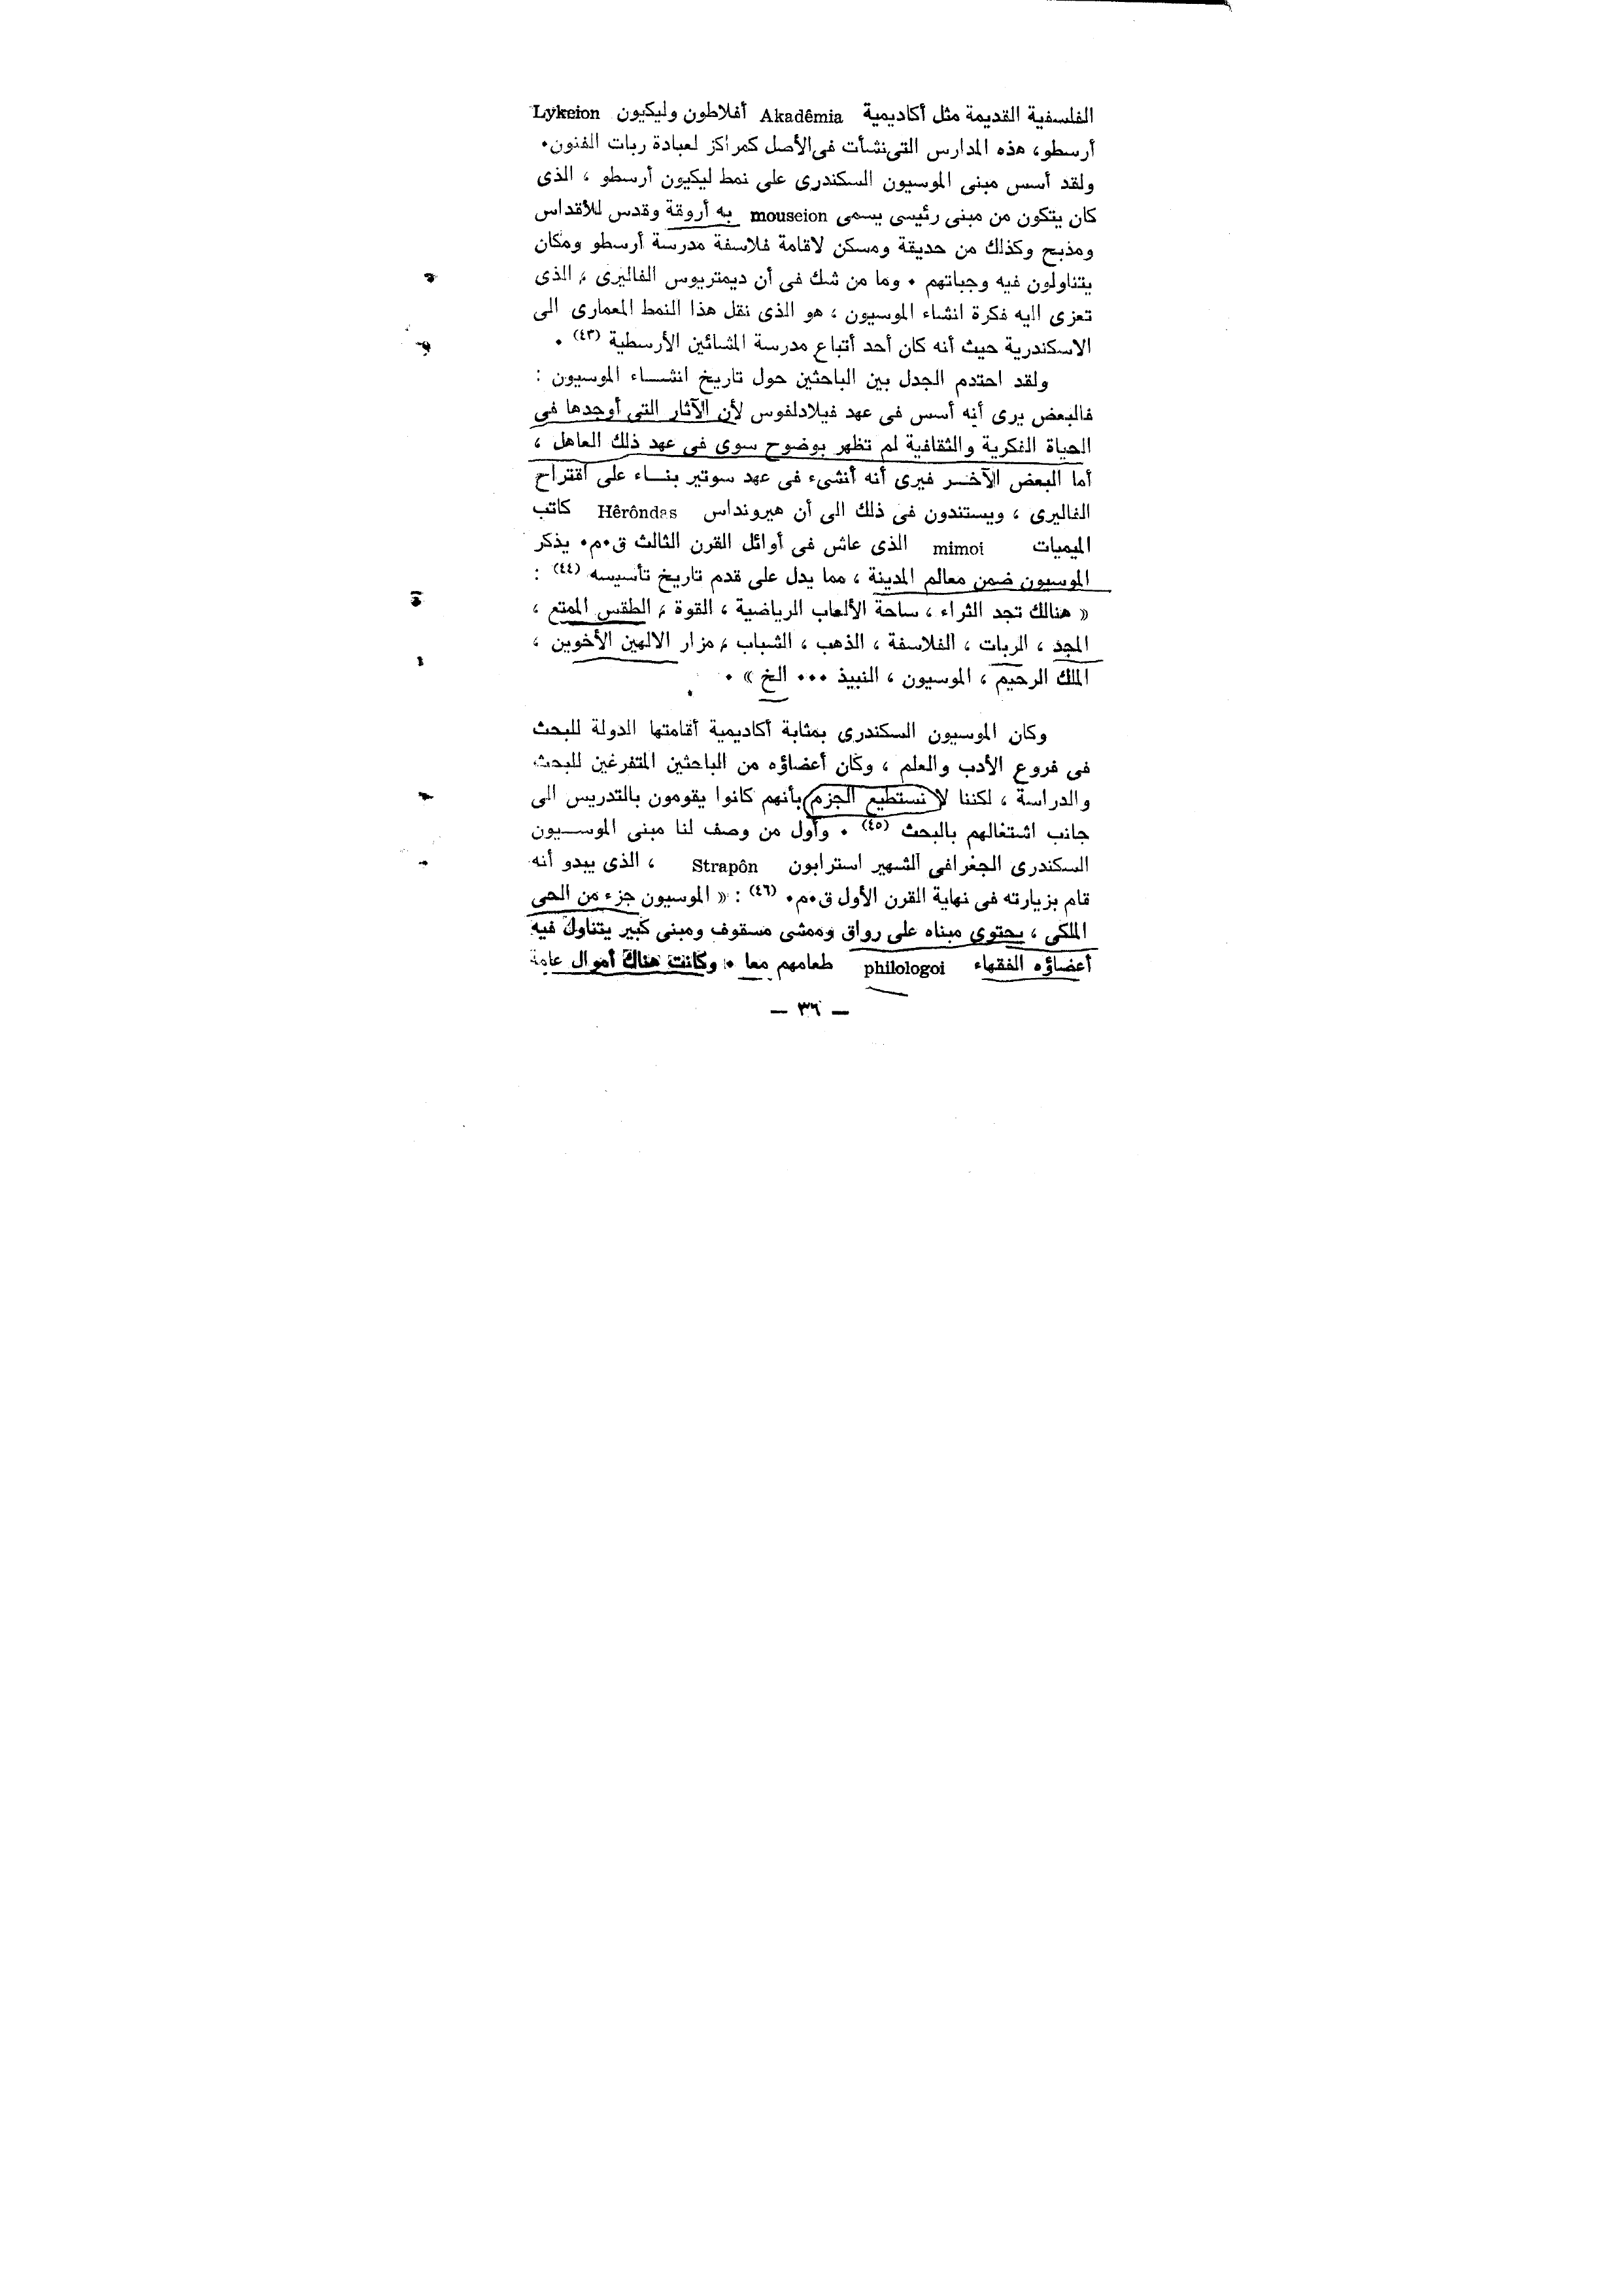 الفلسفية القديمة مثل أكاديمية Akadêmia أفلاطون وليكيون Lykeion
أرسطو، هذه المدارس التى نشأت فى الأصل كمراكز لعبادة ربات الفنون.
ولقد أسس مبنى الموسيون السكندرى على نمط ليكيون أرسطو ، الذى
كان يتكون من مبنى رئيسى يسمى mouseion به أروقة وقدس للأقداس
ومذبح وكذلك من حديقة ومسكن لاقامة فلاسفة مدرسة أرسطو ومكان
يتناولون فيه وجباتهم . وما من شك فى أن ديمتريوس الفاليرى ، الذى
تعزى اليه فكرة انشاء الموسيون ، هو الذى نقل هذا النمط المعمارى الى
الاسكندرية حيث أنه كان أحد أتباع مدرسة المشائين الأرسطية (٤٣) .
ولقد احتدم الجدل بين الباحثين حول تاريخ انشاء الموسيون :
فالبعض يرى أنه أسس فى عهد فيلادلفوس لأن الآثار التى أوجدها فى
الحياة الفكرية والثقافية لم تظهر بوضوح سوى فى عهد ذلك العاهل ،
أما البعض الآخر فيرى أنه أنشىء فى عهد سوتير بناء على اقتراح
الفاليرى ، ويستندون فى ذلك الى أن هيرونداس Hêrôndas كاتب
الميميات mimoi الذى عاش فى أوائل القرن الثالث ق.م. يذكر
الموسيون ضمن معالم المدينة ، مما يدل على قدم تاريخ تأسيسه (٤٤) :
« هنالك تجد الثراء ، ساحة الألعاب الرياضية ، القوة ، الطقس الممتع ،
المجد ، الربات ، الفلاسفة ، الذهب ، الشباب ، مزار الالهين الأخوين ،
الملك الرحيم ، الموسيون ، النبيذ ... الخ » .
وكان الموسيون السكندرى بمثابة أكاديمية أقامتها الدولة للبحث
فى فروع الأدب والعلم ، وكان أعضاؤه من الباحثين المتفرغين للبحث
والدراسة ، لكننا لا نستطيع الجزم بأنهم كانوا يقومون بالتدريس الى
جانب اشتغالهم بالبحث (٤٥) . وأول من وصف لنا مبنى الموسيون
السكندرى الجغرافى الشهير استرابون Strapôn ، الذى يبدو أنه
قام بزيارته فى نهاية القرن الأول ق.م. (٤٦) : « الموسيون جزء من الحى
الملكى ، يحتوى مبناه على رواق وممشى مسقوف ومبنى كبير يتناول فيه
أعضاؤه الفقهاء philologoi طعامهم معا . وكانت هناك أموال عامة
— ٣٦ —